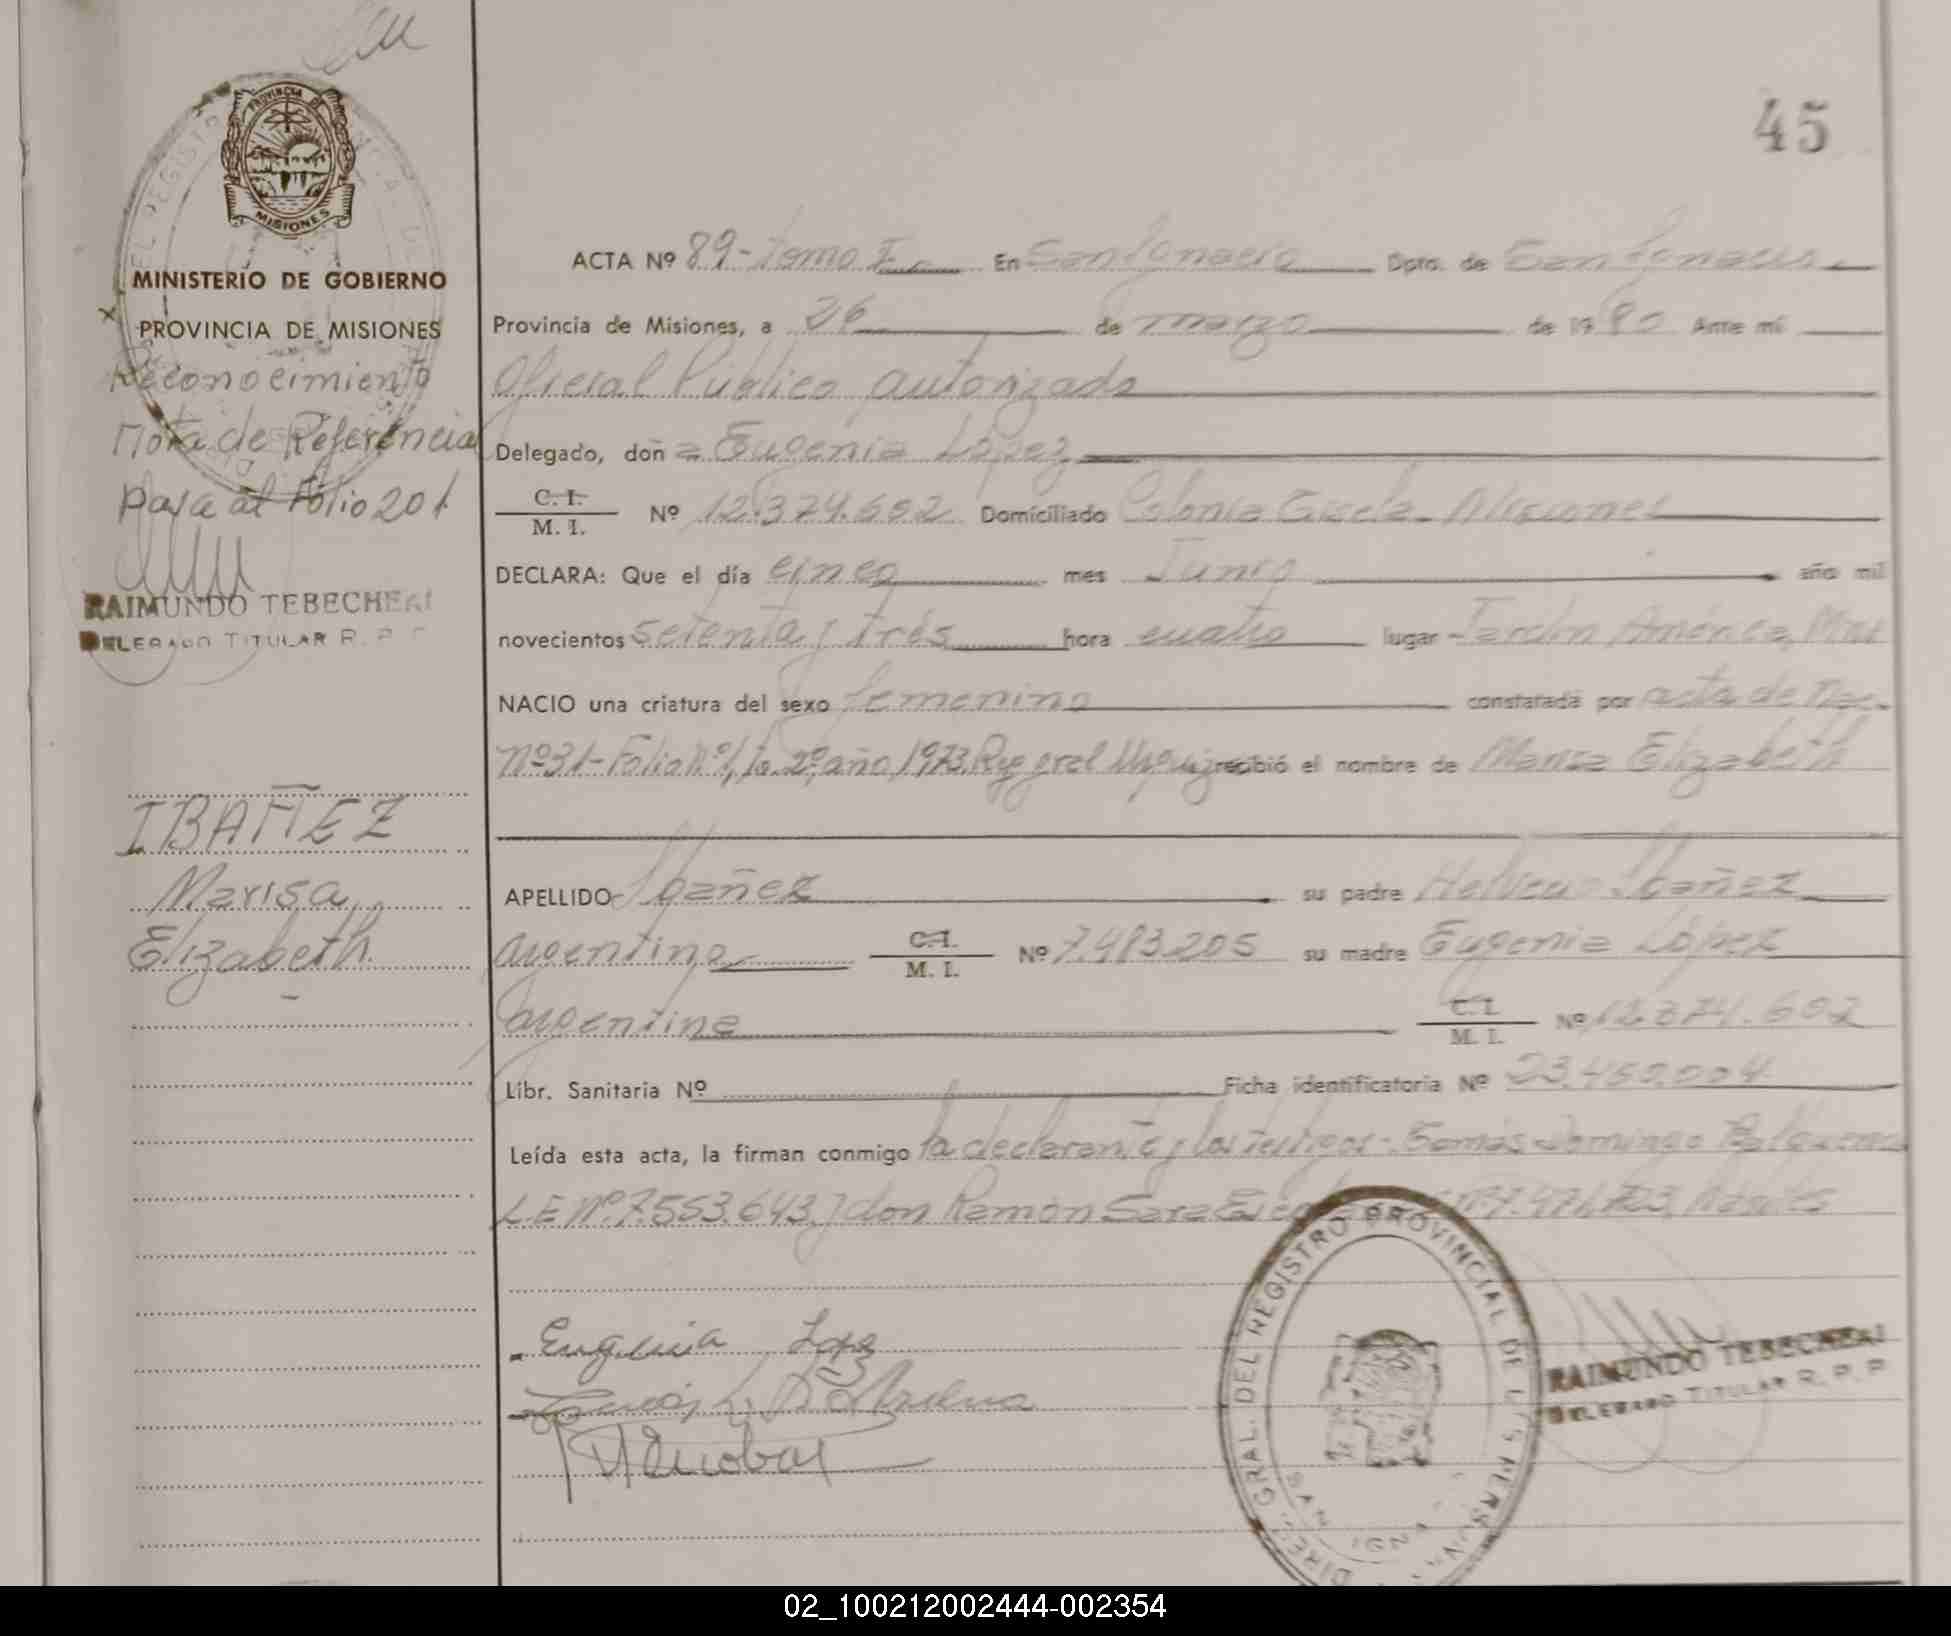 45
PROVINCIA DE
MISIONES
MINISTERIO DE GOBIERNO
PROVINCIA DE MISIONES
Reconocimiento
Nota de Referencia
pasa al Folio 201
RAIMUNDO TEBECHERI
DELEGADO TITULAR R. P. P
IBAÑEZ
Marisa
Elizabeth
ACTA Nº 89 - Tomo I En San Ignacio Dpto. de San Ignacio
Provincia de Misiones, a 26 de marzo de 1980 Ante mí
Oficial Público autorizado
Delegado, doña Eugenia López
C. I.
M. I. Nº 12.374.602 Domiciliado Colonia Gisela - Misiones
DECLARA: Que el día cinco mes Junio año mil
novecientos setenta y trés hora cuatro lugar Jardín América, Mnes
NACIO una criatura del sexo femenino constatada por acta de Nac.
Nº 31 - Folio Nº 1, Tº 2º, año 1973. Reg gral Urquiza recibió el nombre de Marisa Elizabeth
APELLIDO Ibañez su padre Ibañez
argentino C. I.
M. I. Nº 7.483.205 su madre Eugenia López
argentina C. I.
M. I. Nº 12.374.602
Libr. Sanitaria Nº Ficha identificatoria Nº 23.450.004
Leída esta acta, la firman conmigo la declarante y los testigos: Tomás Domingo
L.E Nº 7.553.643 y don Ramón Sara
Eugenia Lopez
Escobar
DIREC. GRAL. DEL REGISTRO PROVINCIAL DE LAS PERSONAS
SAN IGNACIO
RAIMUNDO TEBECHERI
DELEGADO TITULAR R. P. P
02_100212002444-002354